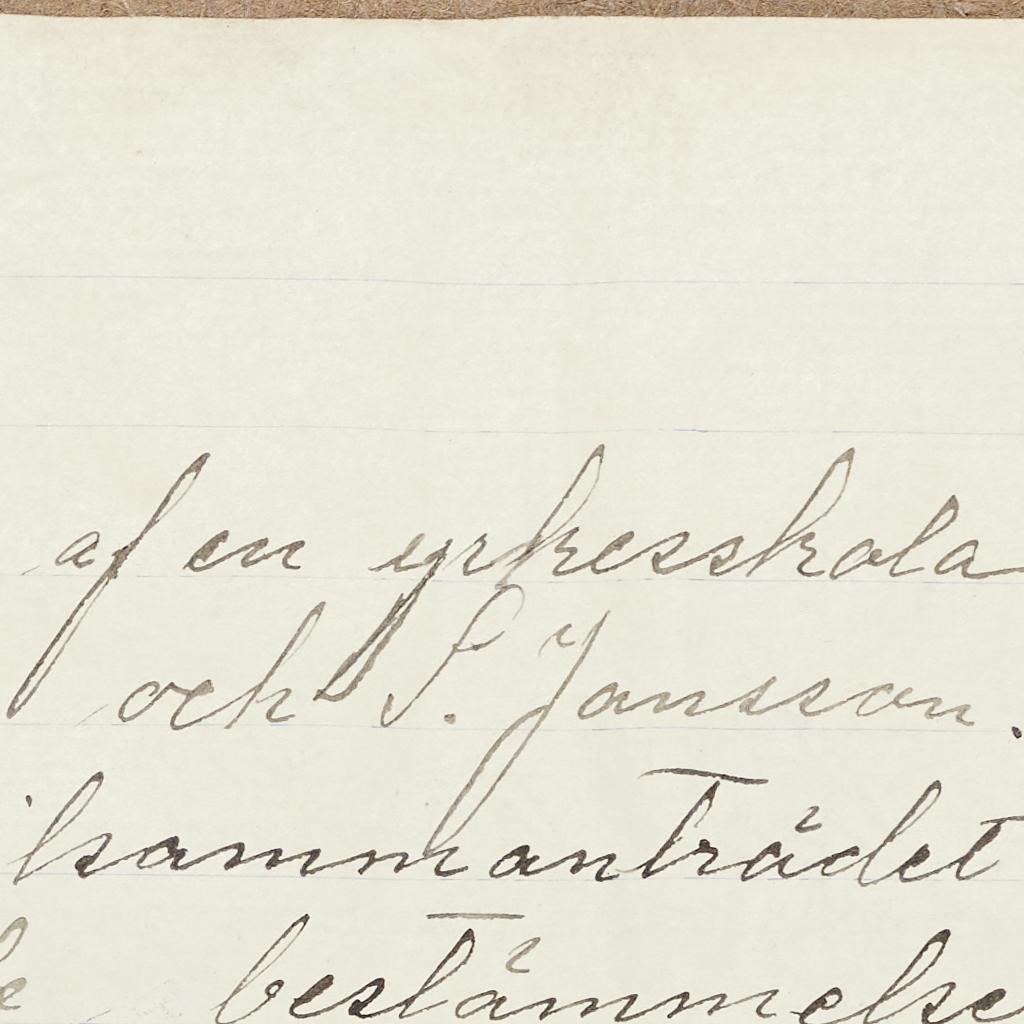 af en yrkesskola
och S. Jansson.
lsammanträdet
bestämmelse